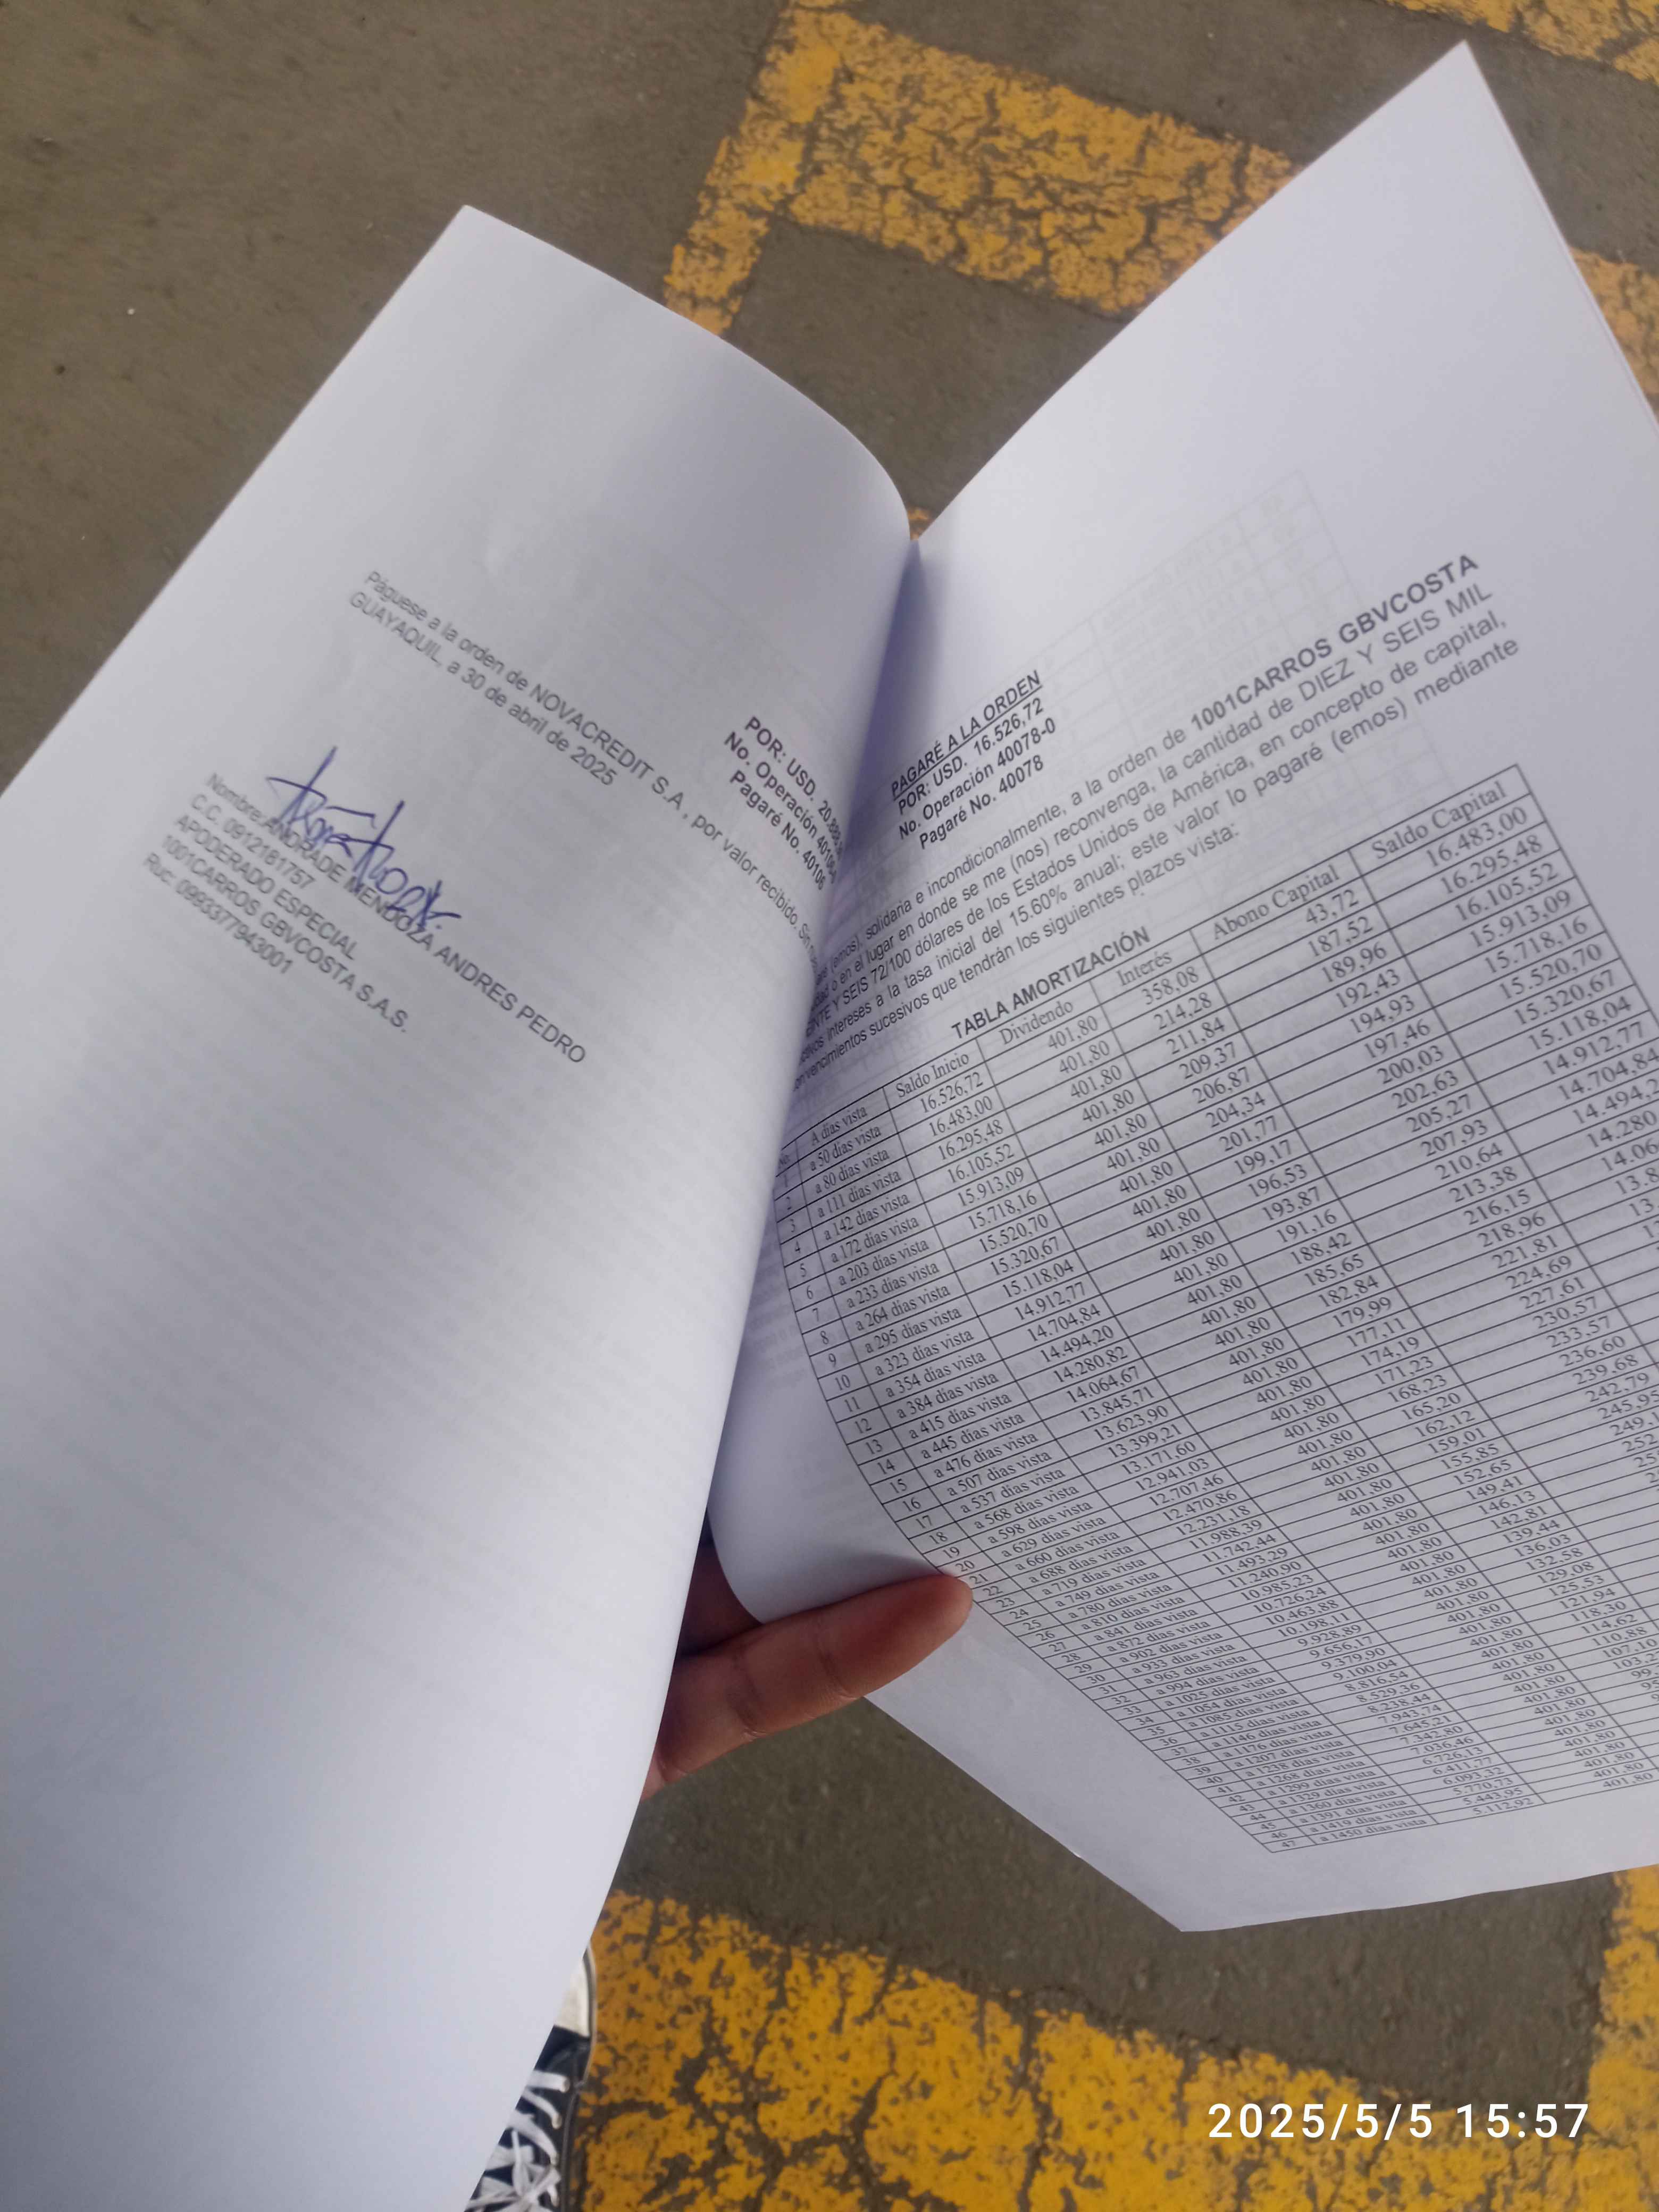 POR: USD. 20.899
No. Operación 40106-0
Pagaré No. 40106
Páguese a la orden de NOVACREDIT S.A , por valor recibido, Sin
GUAYAQUIL, a 30 de abril de 2025
Nombre: ANDRADE MENDOZA ANDRES PEDRO
C.C. 0912181757
APODERADO ESPECIAL
1001CARROS GBVCOSTA S.A.S.
Ruc: 0993377943001
PAGARÉ A LA ORDEN
POR: USD. 16.526,72
No. Operación 40078-0
Pagaré No. 40078
(emos), solidaria e incondicionalmente, a la orden de 1001CARROS GBVCOSTA
ó en el lugar en donde se me (nos) reconvenga, la cantidad de DIEZ Y SEIS MIL
Y SEIS 72/100 dólares de los Estados Unidos de América, en concepto de capital,
intereses a la tasa inicial del 15.60% anual; este valor lo pagaré (emos) mediante
vencimientos sucesivos que tendrán los siguientes plazos vista:
TABLA AMORTIZACIÓN
A dias vista Saldo Inicio Dividendo Interés Abono Capital Saldo Capital
1 a 50 dias vista 16.526,72 401,80 358,08 43,72 16.483,00
2 a 80 dias vista 16.483,00 401,80 214,28 187,52 16.295,48
3 a 111 dias vista 16.295,48 401,80 211,84 189,96 16.105,52
4 a 142 dias vista 16.105,52 401,80 209,37 192,43 15.913,09
5 a 172 dias vista 15.913,09 401,80 206,87 194,93 15.718,16
6 a 203 dias vista 15.718,16 401,80 204,34 197,46 15.520,70
7 a 233 dias vista 15.520,70 401,80 201,77 200,03 15.320,67
8 a 264 dias vista 15.320,67 401,80 199,17 202,63 15.118,04
9 a 295 dias vista 15.118,04 401,80 196,53 205,27 14.912,77
10 a 323 dias vista 14.912,77 401,80 193,87 207,93 14.704,84
11 a 354 dias vista 14.704,84 401,80 191,16 210,64 14.494,2
12 a 384 dias vista 14.494,20 401,80 188,42 213,38 14.280
13 a 415 dias vista 14.280,82 401,80 185,65 216,15 14.06
14 a 445 dias vista 14.064,67 401,80 182,84 218,96 13.8
15 a 476 dias vista 13.845,71 401,80 179,99 221,81 13.
16 a 507 dias vista 13.623,90 401,80 177,11 224,69
17 a 537 dias vista 13.399,21 401,80 174,19 227,61
18 a 568 dias vista 13.171,60 401,80 171,23 230,57
19 a 598 dias vista 12.941,03 401,80 168,23 233,57
20 a 629 dias vista 12.707,46 401,80 165,20 236,60
21 a 660 dias vista 12.470,86 401,80 162,12 239,68
22 a 688 dias vista 12.231,18 401,80 159,01 242,79
23 a 719 dias vista 11.988,39 401,80 155,85 245,95
24 a 749 dias vista 11.742,44 401,80 152,65 249,1
25 a 780 dias vista 11.493,29 401,80 149,41 252
26 a 810 dias vista 11.240,90 401,80 146,13
27 a 841 dias vista 10.985,23 401,80 142,81
28 a 872 dias vista 10.726,24 401,80 139,44
29 a 902 dias vista 10.463,88 401,80 136,03
30 a 933 dias vista 10.198,11 401,80 132,58
31 a 963 dias vista 9.928,89 401,80 129,08
32 a 994 dias vista 9.656,17 401,80 125,53
33 a 1025 dias vista 9.379,90 401,80 121,94
34 a 1054 dias vista 9.100,04 401,80 118,30
35 a 1085 dias vista 8.816,54 401,80 114,62
36 a 1115 dias vista 8.529,36 401,80 110,88
37 a 1146 dias vista 8.238,44 401,80 107,10
38 a 1176 dias vista 7.943,74 401,80 103,2
39 a 1207 dias vista 7.645,21 401,80 99,
40 a 1238 dias vista 7.342,80 401,80 95
41 a 1268 dias vista 7.036,46 401,80
42 a 1299 dias vista 6.726,13 401,80
43 a 1329 dias vista 6.411,77 401,80
44 a 1360 dias vista 6.093,32 401,80
45 a 1391 dias vista 5.770,73 401,80
46 a 1419 dias vista 5.443,95 401,80
47 a 1450 dias vista 5.112,92 401,80
2025/5/5 15:57